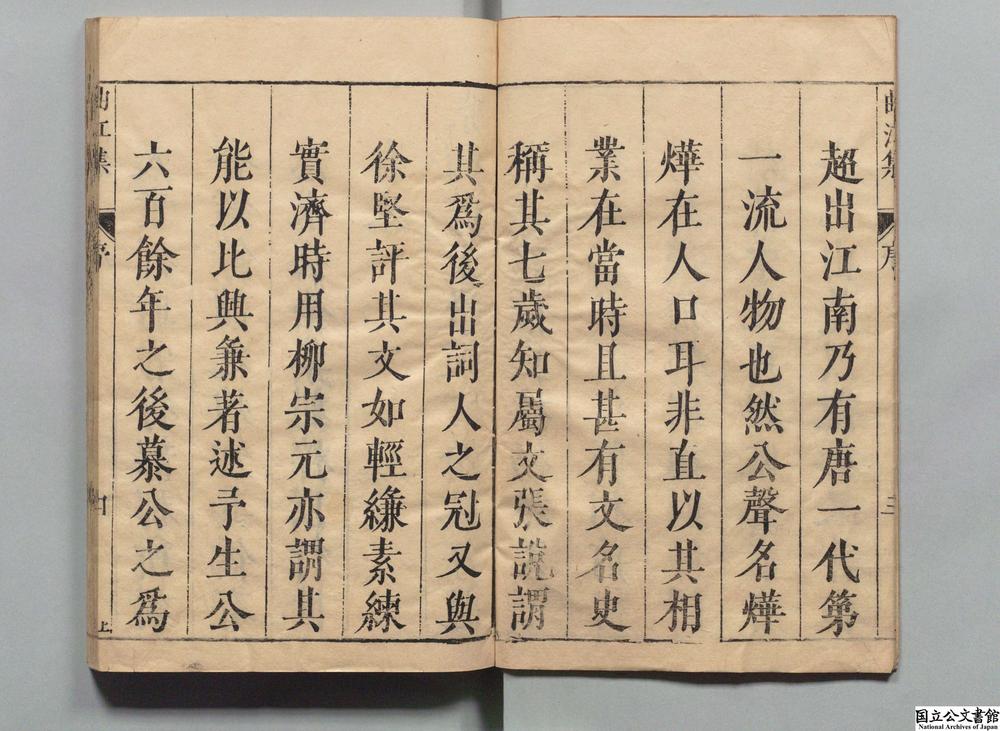 曲江集 序 三
超出江南乃有唐一代第
一流人物也然公聲名燁
燁在人口耳非直以其相
業在當時且甚有文名史
稱其七歲知屬文張說謂
其爲後出詞人之冠又與
徐堅評其文如輕縑素練
實濟時用柳宗元亦謂其
能以比興兼著述予生公
六百餘年之後慕公之爲
曲江集 序 上
国立公文書館
National Archives of Japan